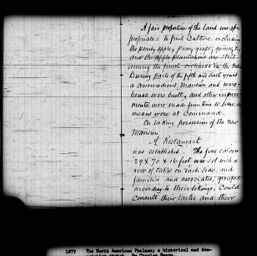 A fair proportion of the land was ap-
propriated to fruit Culture, including
the peach, apple, pear, grape, quince, &c
and the apple plantations are still
among the finest orchards in the
During parts of the fifth and sixth years
a Commodious Mansion and ware-
house were built, and other improve-
ments were made from time to time as
means were at Command.
On taking possession of the new
Mansion
A Restaurant
was established. The fine saloon
x 16 feet was set with a
row of tables on each side, and
families and associates, grouped
according to their likings, Could
Consult their tastes and their
1879 The North American Phalanx; a historical and des-
criptive sketch. By Charles Sears